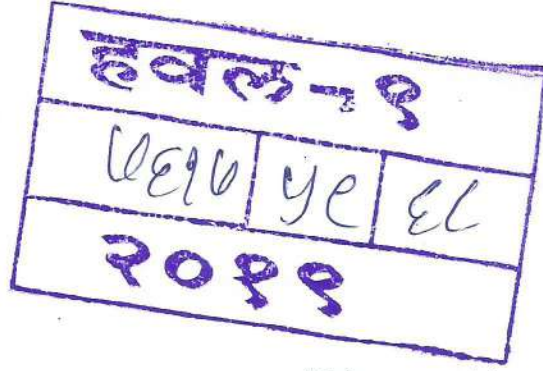 हवल-१
७६१७ ५९ ६८
२०११